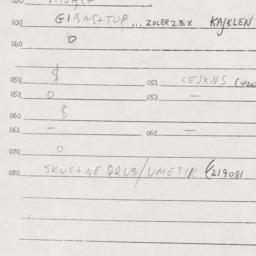 030 GIBASTUP ... ZOLER23X KAJKLEN
040 0
$
050 051 CEJXNS
052 0 053 —
$
060
061 — 062 —
070 0
080 SKUCINE QRUB/UMETIK (219081